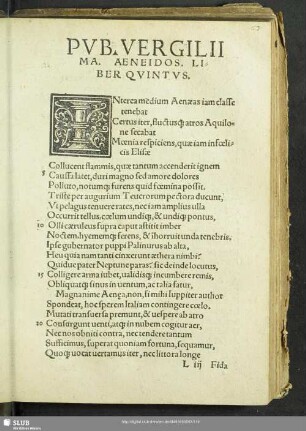 PVB. VERGILII
MA. AENEIDOS. LI-
BER QVINTVS.
INterea medium Aenæas iam classe
tenebat
Certus iter, fluctusq; atros Aquilo-
ne secabat
Mœnia respiciens, quæ iam infœli-
cis Elisæ
Collucent flammis, quæ tantum accenderit ignem
5 Caussa latet, duri magno sed amore dolores
Polluto, notumq; furens quid fœmina possit.
Triste per augurium Teucrorum pectora ducunt,
Vt pelagus tenuere rates, nec iam amplius ulla
Occurrit tellus, cœlum undiq;, & undiq; pontus,
10 Olli cæruleus supra caput astitit imber
Noctem, hyememq; ferens, & inhorruit unda tenebris.
Ipse gubernator puppi Palinurus ab alta,
Heu quia nam tanti cinxerunt æthera nimbi?
Quidue pater Neptune paras? sic deinde locutus,
15 Colligere arma iubet, ualidisq; incumbere remis,
Obliquatq; sinus in uentum, ac talia fatur,
Magnanime Aenea, non, si mihi Iuppiter authot
Spondeat, hoc sperem Italiam contingere cœlo.
Mutati transuersa fremunt, & uespere ab atro
20 Consurgunt uenti, atq; in nubem cogitur aer,
Nec nos obniti contra, nec tendere tantum
Sufficimus, superat quoniam fortuna, sequamur,
Quoq; uocat uertamus iter, nec littora longe
L iij Fida
SLUB